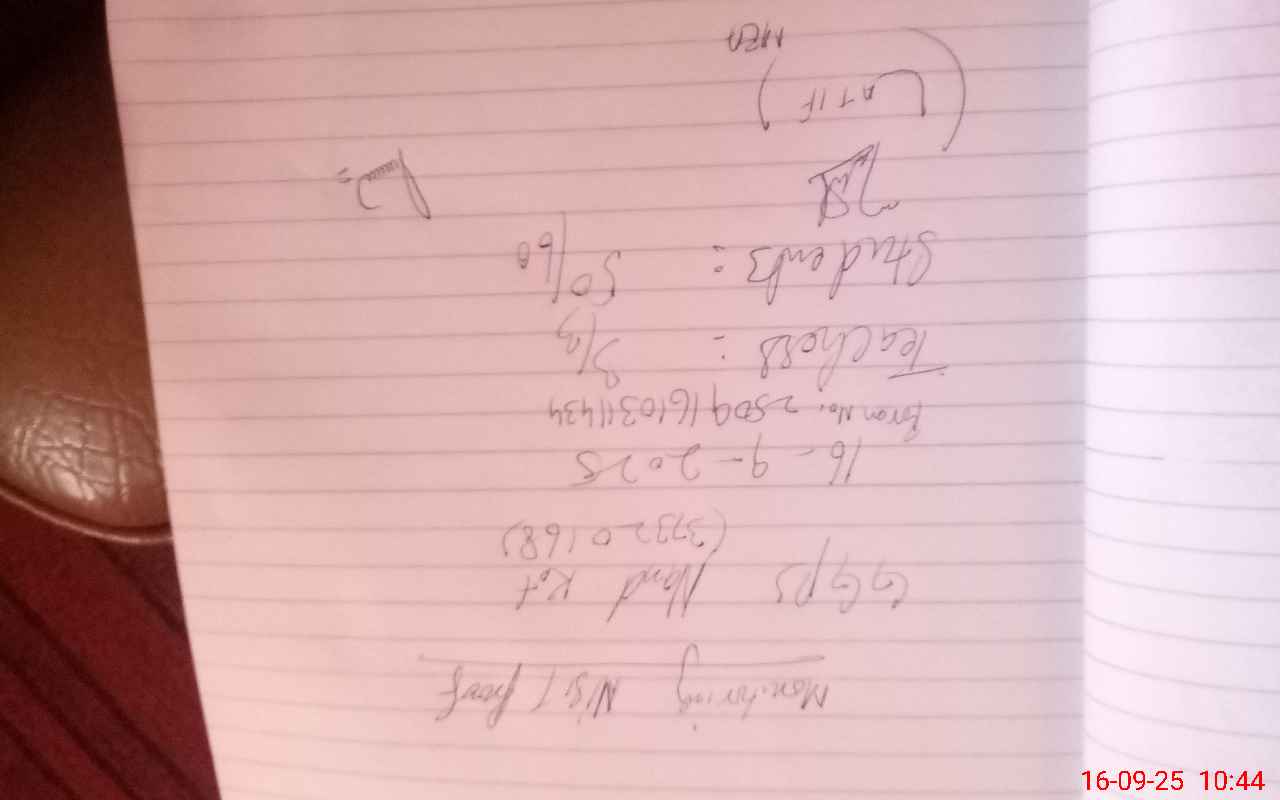 Monitoring Visit Proof
GGPS Nand Kot
(37320168)
16-9-2025
Bron No. 250916103111434
Teachers : 3/3
Students : 50/60
(LATIF)
MEA
16-09-25 10:44